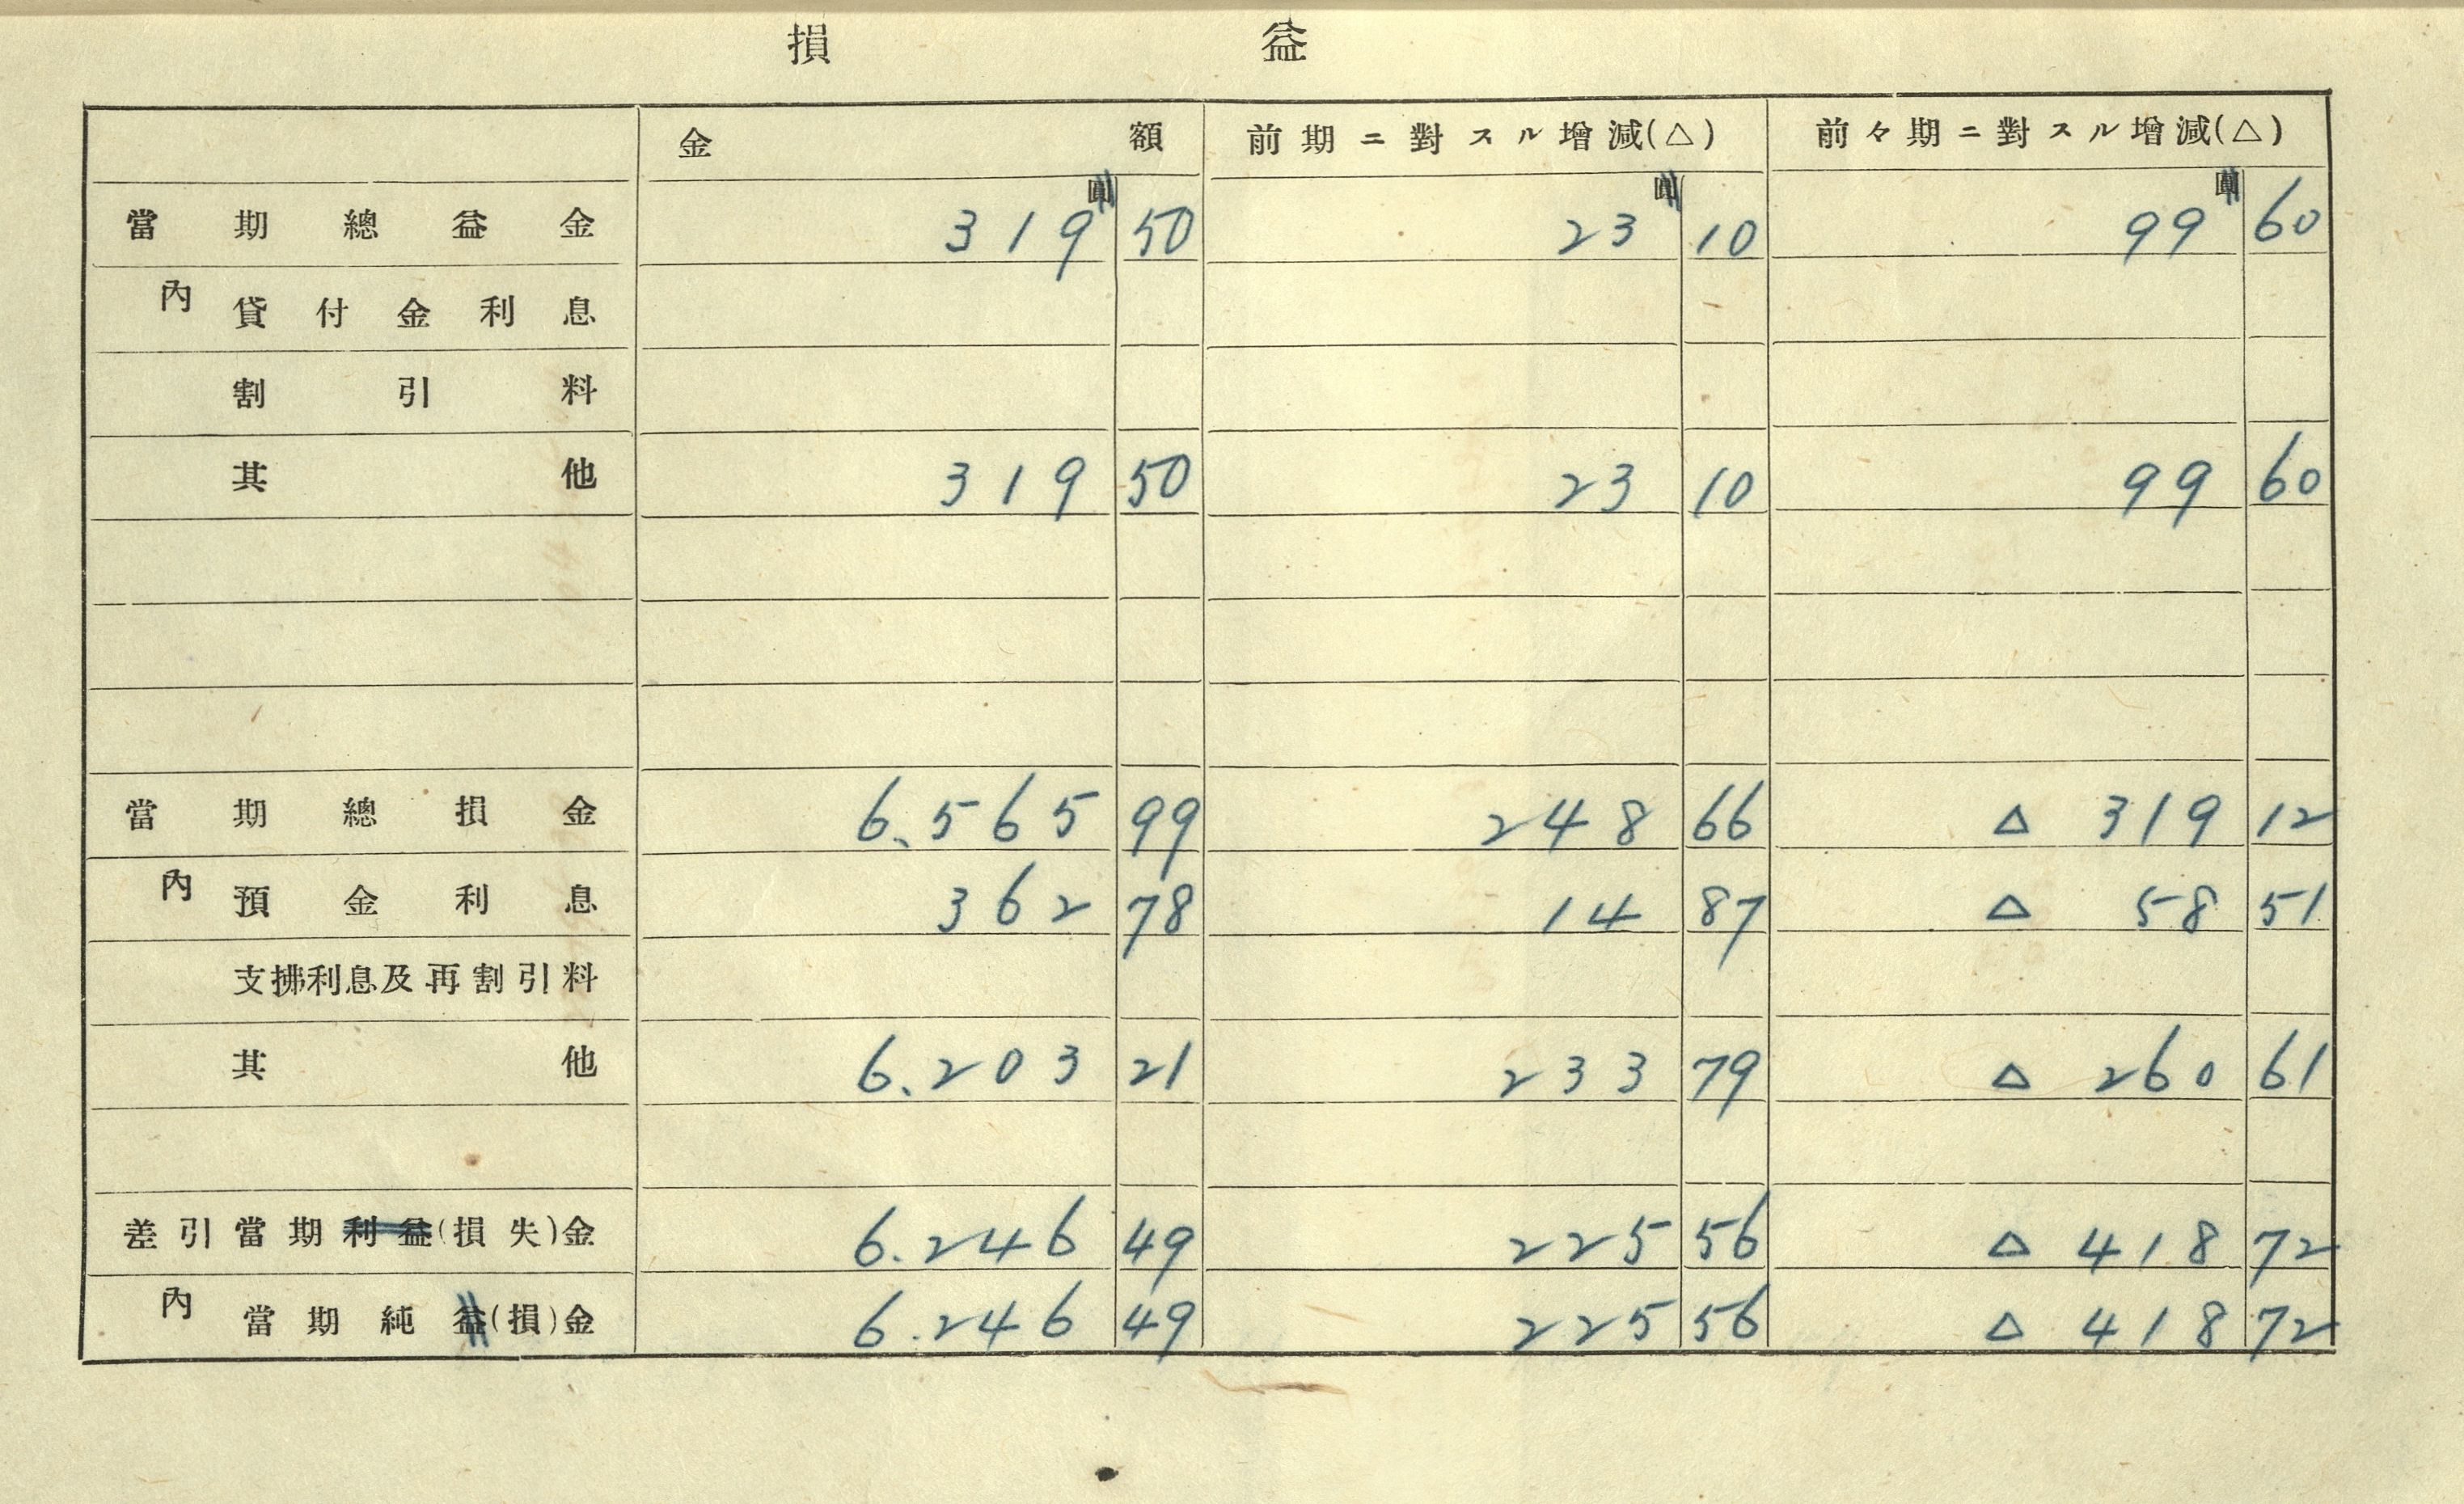 損益
金額 前期ニ對スル增減(△) 前々期ニ對スル增減(△)
圓 圓 圓
當期總益金 319 50 23 10 99 60
內 貸付金利息
割引料
其他 319 50 23 10 99 60
當期總損金 6.565 99 248 66 △ 319 12
內 預金利息 362 78 14 87 △ 58 51
支拂利息及再割引料
其他 6.203 21 233 79 △ 260 61
差引當期利益(損失)金 6.246 49 225 56 △ 418 72
內 當期純益(損)金 6.246 49 225 56 △ 418 72